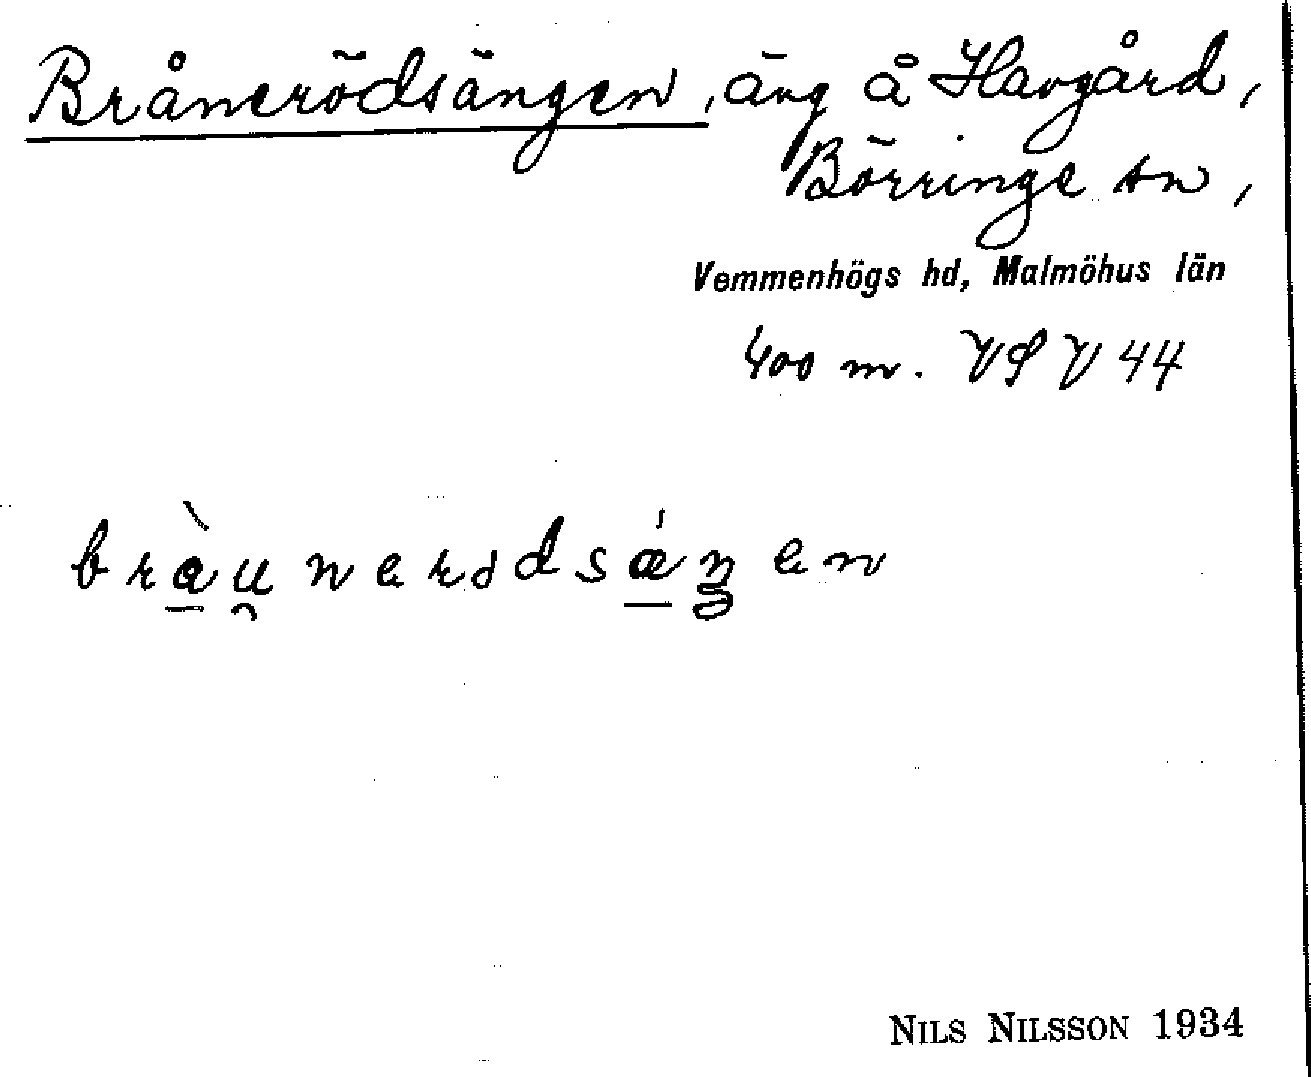 Brånerödsängen, äng å Havgård,
Börringe sn,
Vemmenhögs hd, Malmöhus län
400 m. VSV 44
bràu̯nerodsǽŋen
NILS NILSSON 1934